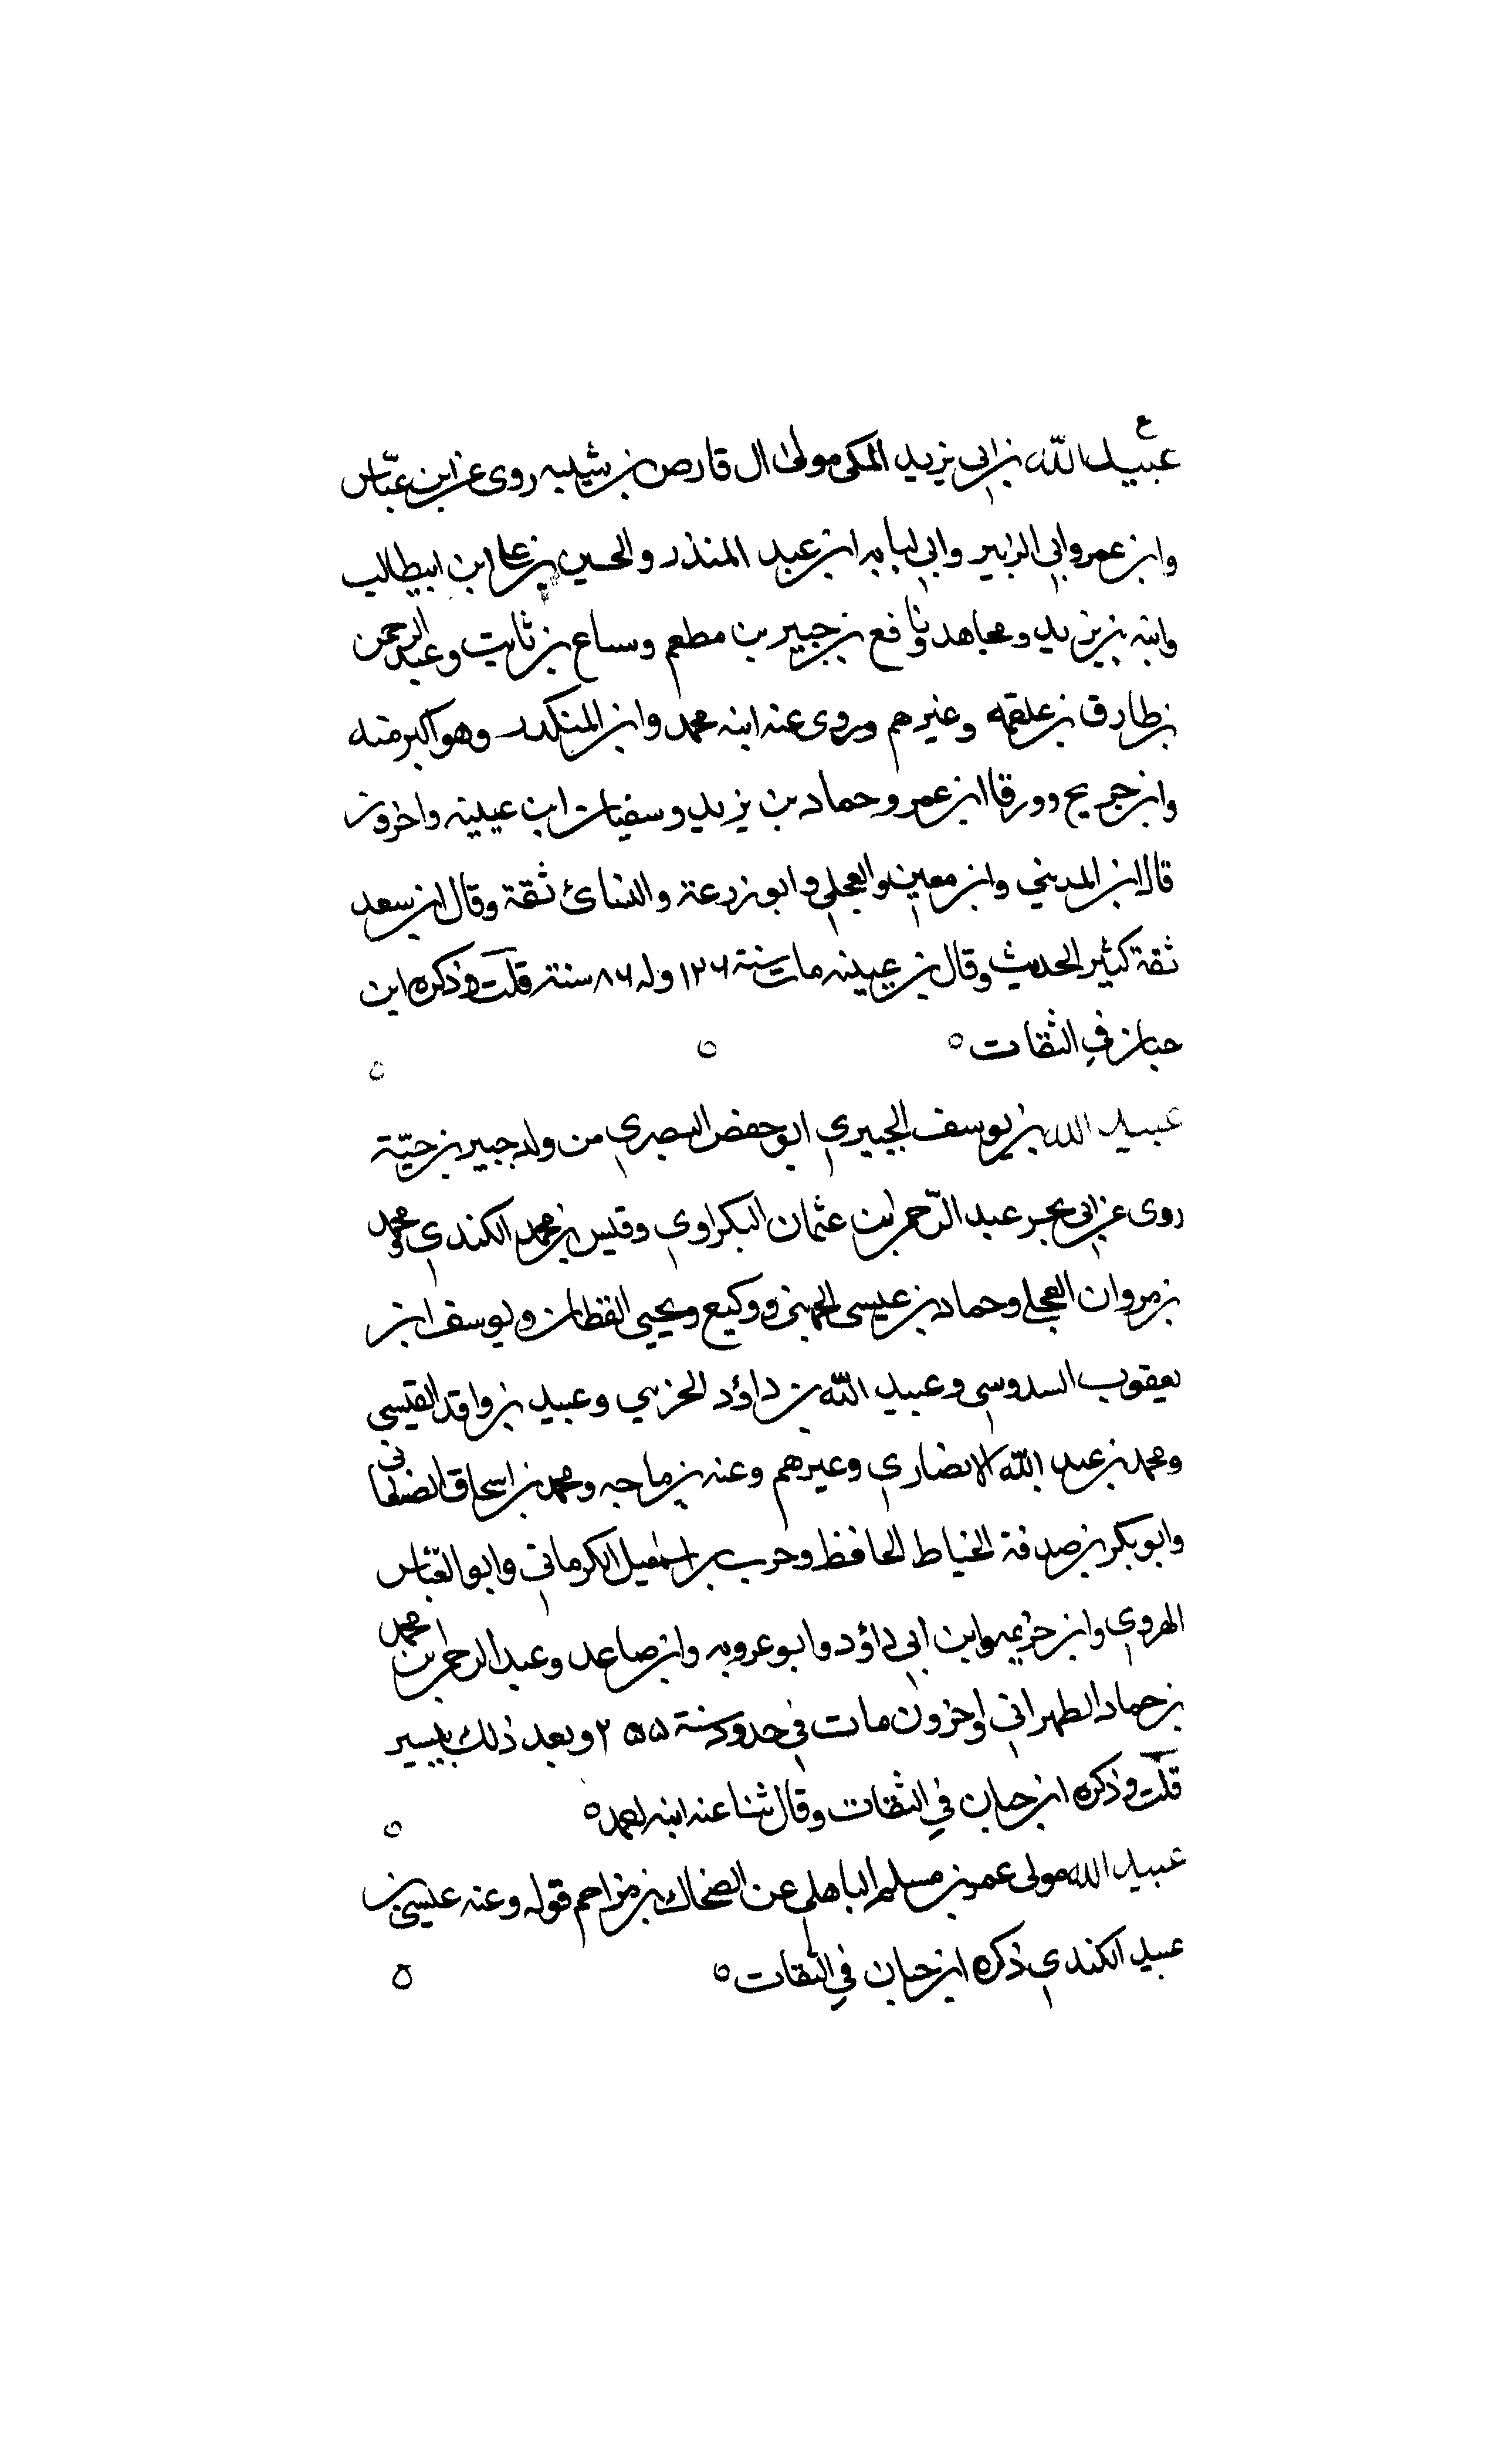 ع
عبيد الله بن ابي يزيد المكي مولى ال قارص بن شيبه روى عن ابن عباس
وابن عمر وابي الزبير وابي لبابه ابن عبد المنذر والحسين بن علي ابن ابيطالب
وابنه بن يزيد ومجاهد ونافع بن جبير بن مطعم وسباع بن ثابت وعبد الرحمن
بن طارق بن علقمه وغيرهم وروى عنه ابنه محمد وابن المنكدر وهو اكبر منه
وابن جريج وورقا ابن عمر وحماد بن يزيد وسفيان ابن عيينه واخرون
قال ابن المديني وابن معين والعجلي وابو زرعة والنسائ ثقة وقال ابن سعد
ثقة كثير الحديث وقال بن عيينه مات سنة ١٢٦ وله ٨٦ سنة قلت وذكره ابن
حبان في الثقات ه
عبيد الله بن يوسف الجبيري ابو حفض البصري من ولد جبير بن حيّة
روى عن ابي بحر عبد الرّحمن ابن عثمان البكراوي وقيس بن محمد الكندي ومحمد
بن مروان العجلي وحماد بن عيسى الجهني ووكيع ويحيى القطان ويوسف ابن
يعقوب السدوسي وعبيد اللّه بن داؤد الخزبي وعبيد بن واقد القيسي
ومحمد بن عبد اللّه الانصاري وغيرهم وعنه بن ماجه ومحمد بن اسحاق الصنعاني
وابو بكر بن صدقة الخياط الحافظ وحرب بن اسمعيل الكرماني وابو العبّاس
الهروي وابن خزيمه وابن ابي داؤد وابو عروبه وابن صاعد وعبد الرحمن بن محمد
بن حماد الطهراني واخرون مات في حدود سنة ٢٥٥ وبعد ذلك بيسير
قلت وذكره ابن حبان في الثقات وقال ثنا عنه ابنه احمد ه
عبيد الله مولى عمر بن مسلم الباهلي عن الضحاك بن مزاحم قوله وعنه عيسى بن
عبيد الكندي ذكره ابن حبان في الثقات ه